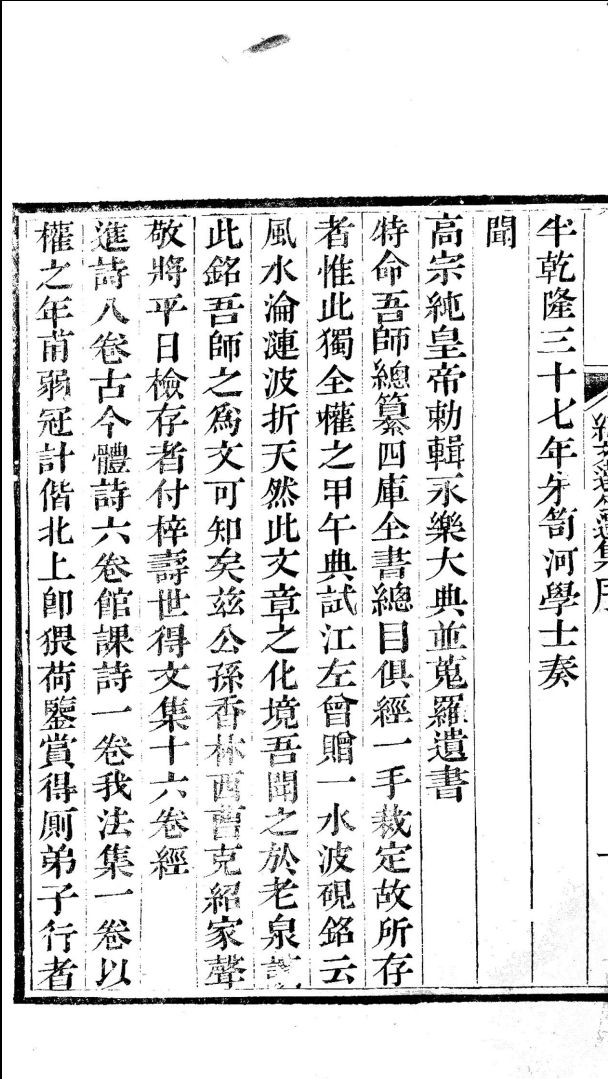 半乾隆三十七年朱笥河學士奏
聞
高宗純皇帝勅輯永樂大典並蒐羅遺書
特命吾師總纂四庫全書總目俱經一手裁定故所存
者惟此獨全權之甲午典試江左曾贈一水波硯銘云
風水淪漣波折天然此文章之化境吾聞之於老泉
此銘吾師之為文可知矣兹公孫香林西曹克紹家聲
敬將平日檢存者付梓壽世得文集十六卷經
進詩八卷古今體詩六卷館課詩一卷我法集一卷以
權之年甫弱冠計偕北上卽猥荷鑒賞得厠弟子行者